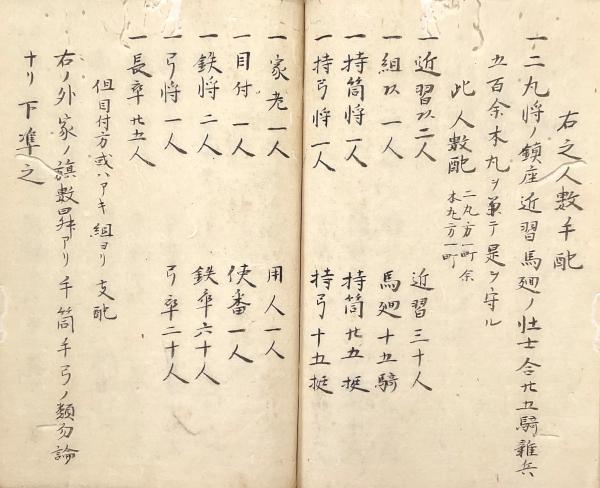 右之人数手配
一二丸将ノ鎮座近習馬廻ノ壮士合廿五騎雑兵
五百余本丸ヲ兼テ是ヲ守ル
此人数配 二丸方一町余
本丸方一町
一近習以二人 近習三十人
一組以一人 馬廻十五騎
一持筒将一人 持筒廿五挺
一持弓将一人 持弓十五挺
一家老一人 用人一人
一目付一人 使番一人
一鉄将二人 鉄卒六十人
一弓将一人 弓卒二十人
一長卒廿五人
但目付方或ハアキ組ヨリ支配
右ノ外家ノ旗数アリ手筒手弓ノ類勿論
ナリ下準之